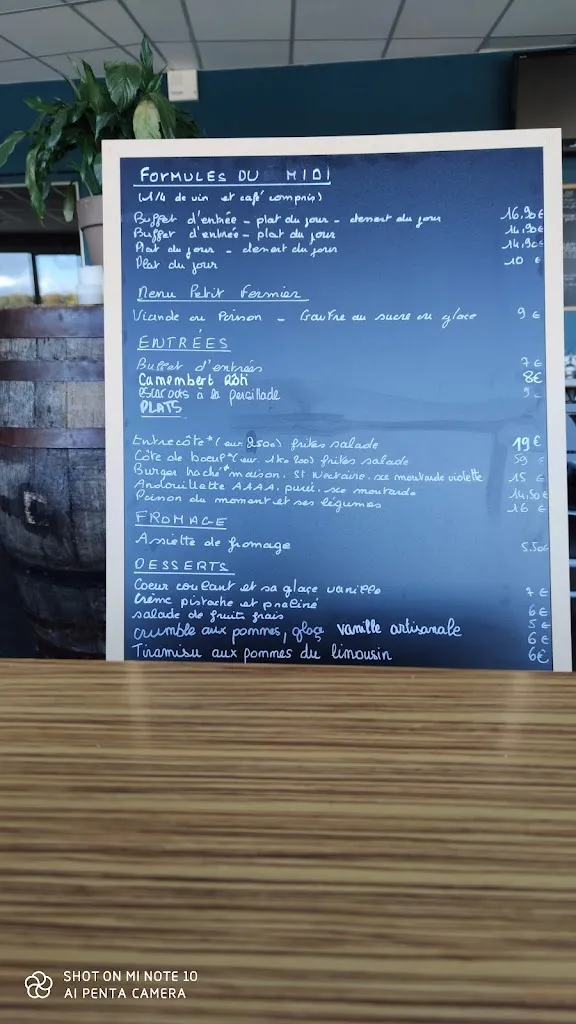 FORMULES DU MIDI
(1/4 de vin et café compris)
Buffet d'entrée - plat du jour - dessert du jour 16.90€
Buffet d'entrée - plat du jour 14.90€
Plat du jour - dessert du jour 14.90€
Plat du jour 10 €
Menu Petit Fermier
Viande ou Poisson - Gaufre au sucre ou glace 9 €
ENTRÉES
Buffet d'entrées 7 €
Camembert Rôti 8€
escargots à la persillade 9 -
PLATS
Entrecôte* (env 250g) frites salade 19 €
Côte de boeuf* (env. 1kg 200) frites salade 59 €
Burger haché* maison, St Nectaire, sce moutarde violette 15 €
Andouillette AAAA, purée, sce moutarde 14,50€
Poisson du moment et ses légumes 16 €
FROMAGE
Assiette de fromage 5.50€
DESSERTS
Coeur coulant et sa glace vanille 7 €
Crème pistache et praliné 6 €
salade de fruits frais 5 €
crumble aux pommes, glace vanille artisanale 6 €
Tiramisu aux pommes du limousin 6€
SHOT ON MI NOTE 10
AI PENTA CAMERA